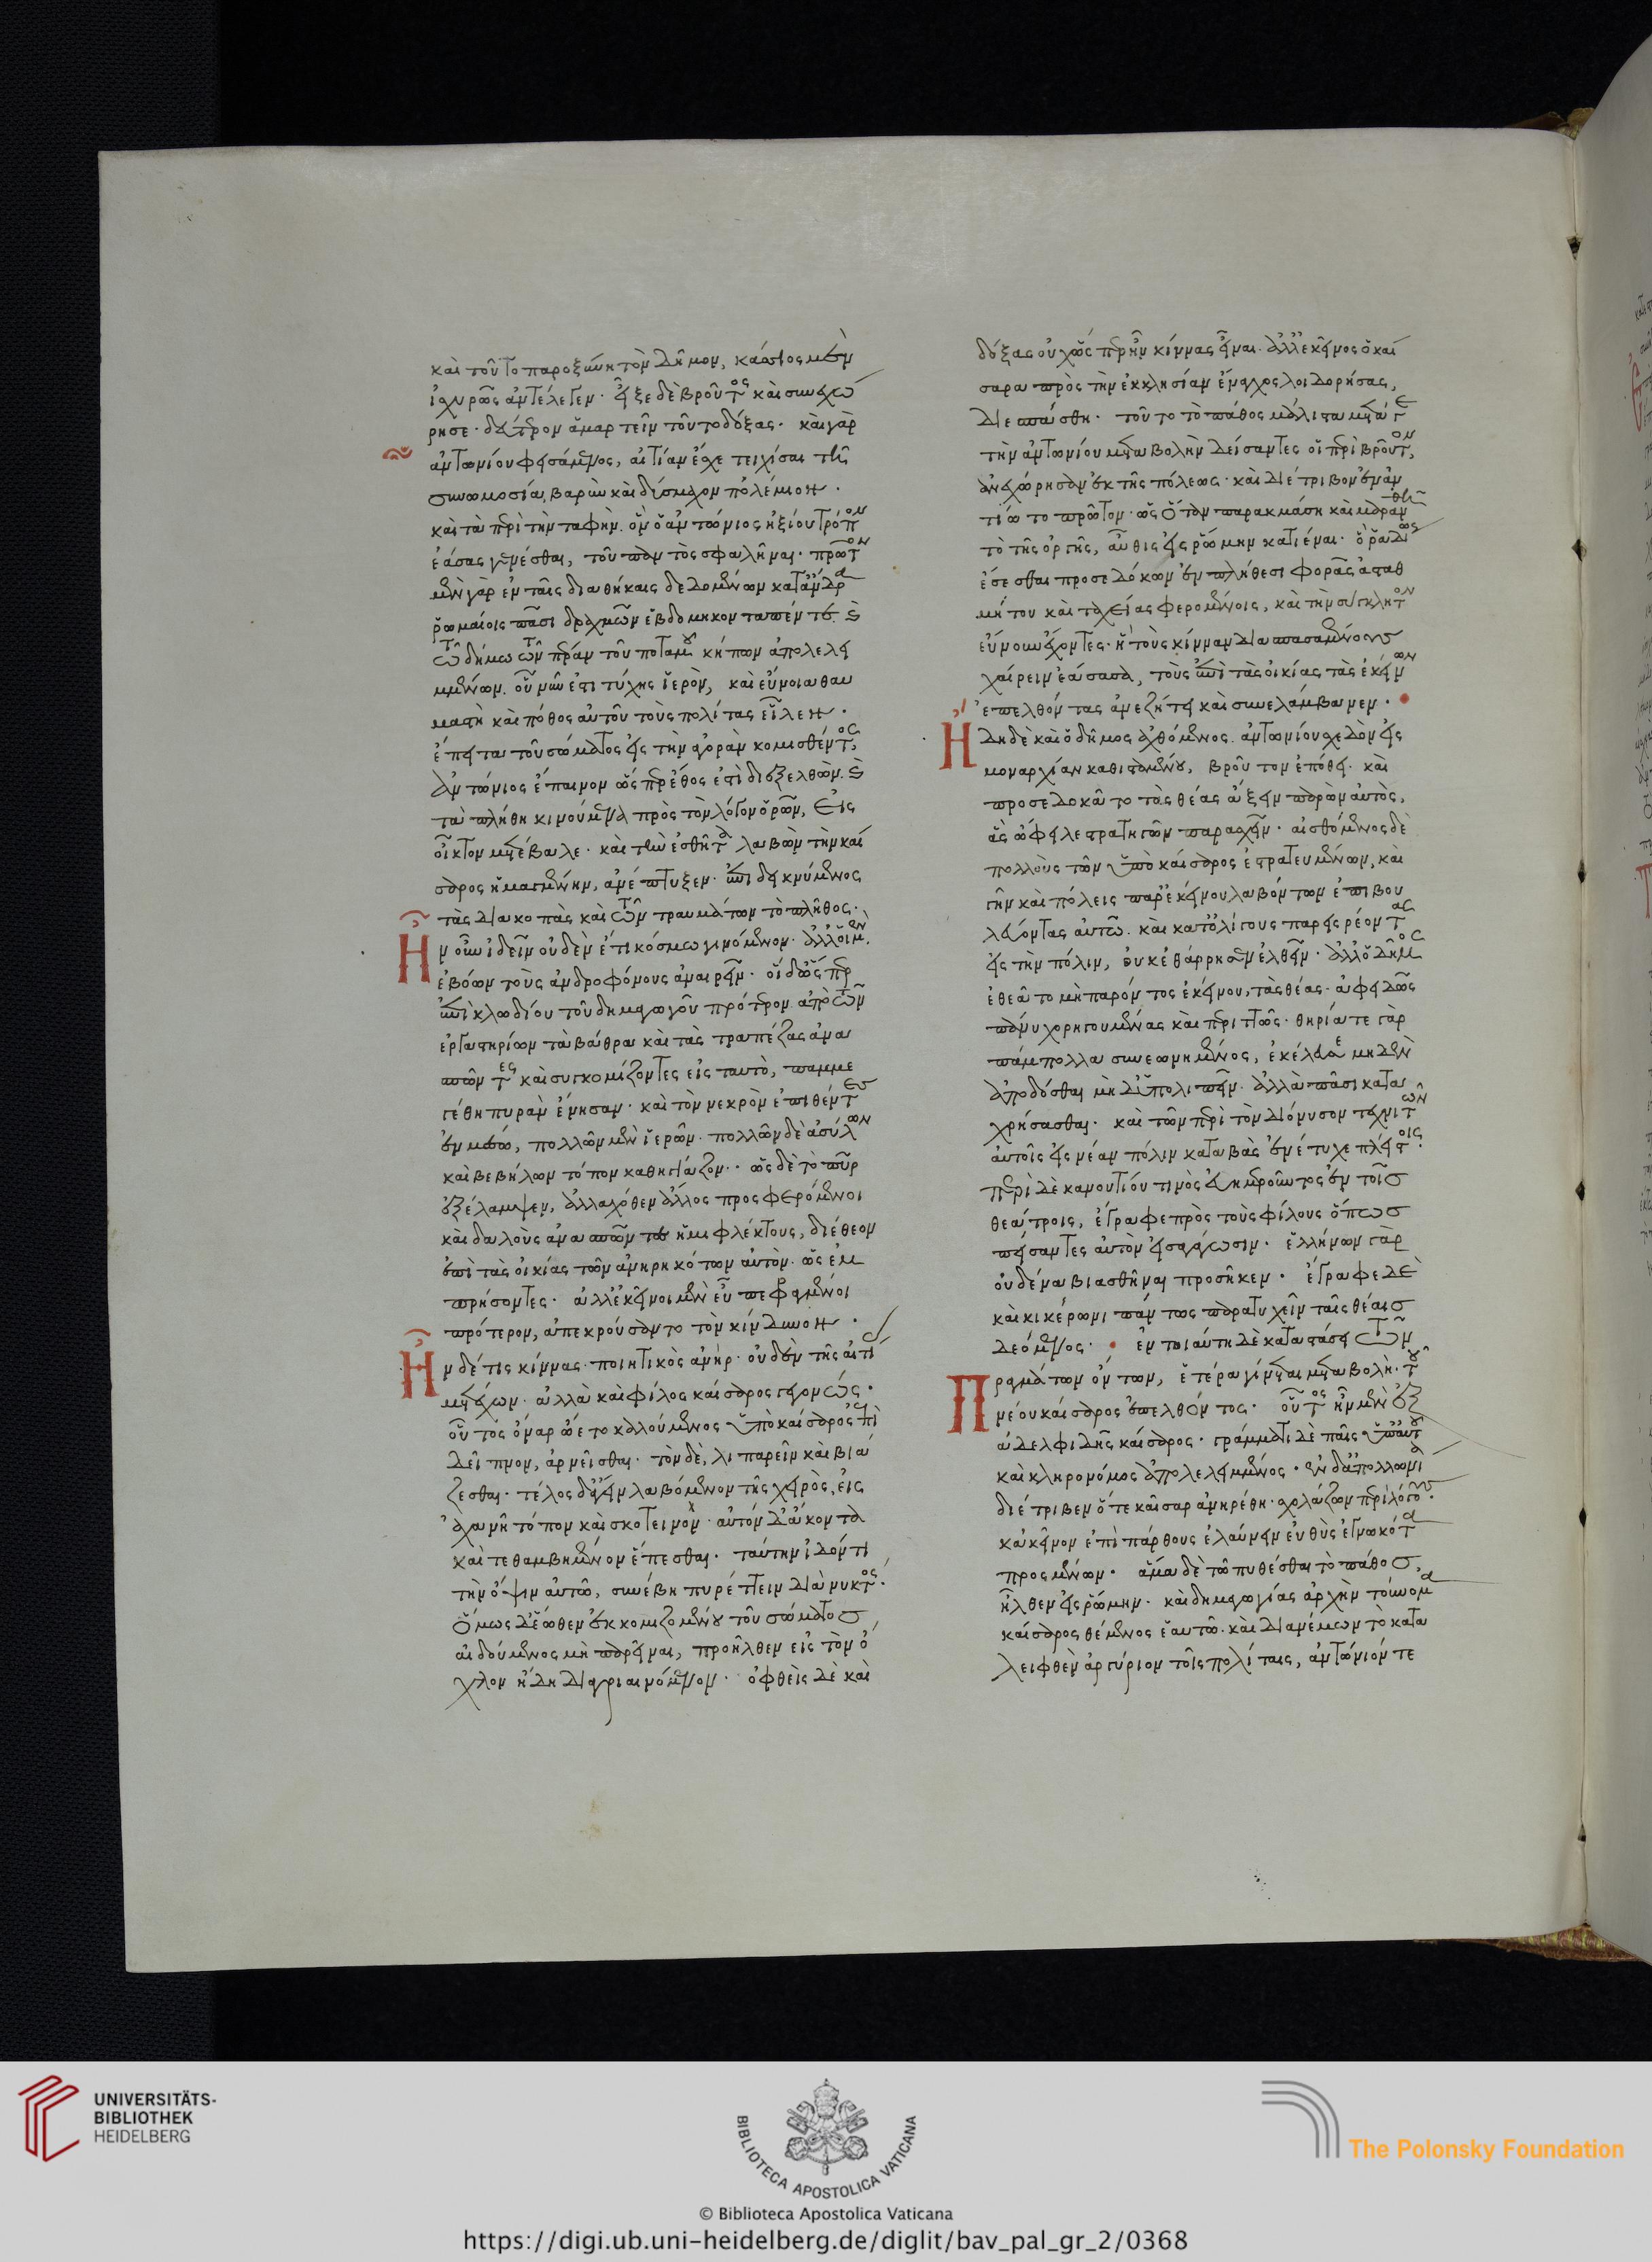 καὶ τοῦτο παροξύνῃ τὸν δῆμον, κάσσιος μὲν
ἰσχυρῶς ἀντέλεγεν· εἶξε δὲ βροῦτος καὶ συνεχώ
ρησε· δεύτερον ἁμαρτεῖν τοῦτο δόξας· καὶ γὰρ
ἀντωνίου φεισάμενος, αἰτίαν ἔσχε τειχίσαι τῆ
συνωμοσία, βαρὺν καὶ δύσμαχον πολέμιον·
καὶ τὰ περὶ τὴν ταφὴν. ὃν ὁ ἀντώνιος ἠξίου τρόπον
ἐάσας γενέσθαι, τοῦ παντὸς σφαλῆναι· πρῶτον
μὲν γὰρ ἐν ταῖς διαθήκαις δεδομένων κατ' ἄνδρα
ῥωμαίοις πᾶσι δραχμῶν ἑβδομήκοντα πέντε· καὶ
τῶ δήμω τῶν πέραν τοῦ ποταμοῦ κήπων ἀπολελει
μμένων. οὗ νῦν ἐστι τύχης ἱερὸν, καὶ εὔνοια θαυ
μαστὴ καὶ πόθος αὐτοῦ τοὺς πολίτας εἷλεν·
ἔπειτα τοῦ σώματος εἰς τὴν ἀγορὰν κομισθέντος,
ἀντώνιος ἔπαινον ὥσπερ ἔθος ἐστὶ διεξελθὼν. καὶ
τὰ πλήθη κινούμενα πρὸς τὸν λόγον ὁρῶν, εἰς
οἶκτον μετέβαλε· καὶ τὴν ἐσθῆτα λαβὼν τὴν καί
σαρος ἡμαγμένην, ἀνέπτυξεν· ἐπιδεικνύμενος
τὰς διακοπὰς καὶ τῶν τραυμάτων τὸ πλῆθος·
Ἦν οὖν ἰδεῖν οὐδὲν ἔτι κόσμω γινόμενον· ἀλλ' οἱ μὲν
ἐβόων τοὺς ἀνδροφόνους ἀναιρεῖν· οἱ δ' ὥσπερ
ἐπὶ κλωδίου τοῦ δημαγωγοῦ πρότερον. ἀπὸ τῶν
ἐργαστηρίων τὰ βάθρα καὶ τὰς τραπέζας ἀνα
σπῶντες καὶ συγκομίζοντες εἰς ταυτὸ, παμμε
γέθη πυρὰν ἔνησαν· καὶ τὸν νεκρὸν ἐπιθέντες
ἐν μέσω, πολλῶν μὲν ἱερῶν· πολλῶν δὲ ἀσύλων
καὶ βεβήλων τόπον καθήγιζον· ὡς δὲ τὸ πῦρ
ἐξέλαμψεν, ἀλλαχόθεν ἄλλος προσφερόμενοι
καὶ δαλοὺς ἀνασπῶντες ἡμιφλέκτους, διέθεον
ἐπὶ τὰς οἰκίας τῶν ἀνηρηκότων αὐτὸν· ὡς ἐμ
πρήσοντες· ἀλλ' ἐκεῖνοι μὲν εὖ πεφραγμένοι
πρότερον, ἀπεκρούσαντο τὸν κίνδυνον·
Ἦν δέ τις κίννας· ποιητικὸς ἀνὴρ· οὐδὲν τῆς αἰτί
μετέχων· ἀλλὰ καὶ φίλος καίσαρος γεγονώς·
οὗτος ὄναρ ᾤετο καλούμενος ὑπὸ καίσαρος ἐπὶ
δεῖπνον, ἀρνεῖσθαι· τὸν δὲ, λιπαρεῖν καὶ βιά
ζεσθαι· τέλος δ' ἄγειν λαβόμενον τῆς χειρὸς, εἰς
ἀχανῆ τόπον καὶ σκοτεινὸν· αὐτὸν δ' ἄκοντα
καὶ τεθαμβημένον ἕπεσθαι· ταύτην ἰδόντι
τὴν ὄψιν αὐτῶ, συνέβη πυρέττειν διὰ νυκτὸς·
ὅμως δ' ἕωθεν ἐκκομιζομένου τοῦ σώματος
αἰδούμενος μὴ παρεῖναι, προῆλθεν εἰς τὸν ὄ
χλον ἤδη διαγριαινόμενον· ὀφθεὶς δὲ καὶ
δόξας οὐχ ὥσπερ ἦν κίννας εἶναι· ἀλλ' ἐκεῖνος ὁ καί
σαρα πρὸς τὴν ἐκκλησίαν ἔναγχος λοιδορήσας,
διεσπάσθη· τοῦτο τὸ πάθος μάλιστα μετά γε
τὴν ἀντωνίου μεταβολὴν δείσαντες οἱ περὶ βροῦτον,
ἀνεχώρησαν ἐκ τῆς πόλεως· καὶ διέτριβον ἐν ἀν
τίω τὸ πρῶτον· ὡς ὅταν παρακμάση καὶ μαρανθῆ
τὸ τῆς ὀργῆς, αὖθις εἰς ῥώμην κατιέναι· ὃ ῥαδίως
ἔσεσθαι προσεδόκων ἐν πλήθεσι φορὰς ἀσταθ
μήτους καὶ ταχείας φερομένοις, καὶ τὴν σύγκλητον
εὔνουν ἔχοντες· ἣ τοὺς κίνναν διασπασαμένους
χαίρειν ἐάσασα, τοὺς ἐπὶ τὰς οἰκίας τὰς ἐκείνων
ἐπελθόντας ἀνεζήτει καὶ συνελάμβανεν·
Ἤδη δὲ καὶ ὁ δῆμος ἀχθόμενος. ἀντωνίου σχεδὸν εἰς
μοναρχίαν καθισταμένου, βροῦτον ἐπόθει· καὶ
προσεδοκᾶτο τὰς θέας ἄξειν παρὼν αὐτὸς,
ἃς ὤφειλε στρατηγῶν παρασχεῖν· αἰσθόμενος δὲ
πολλοὺς τῶν ὑπὸ καίσαρος ἐστρατευμένων, καὶ
γῆν καὶ πόλεις παρ' ἐκείνου λαβόντων ἐπιβου
λεύοντας αὐτῶ· καὶ κατ' ὀλίγους παρεισρέοντας
εἰς τὴν πόλιν, οὐκ ἐθάρρησεν ἐλθεῖν· ἀλλ' ὁ δῆμος
ἐθεᾶτο μὴ παρόντος ἐκείνου, τὰς θέας· ἀφειδῶς
πάνυ χορηγουμένας καὶ περιττῶς· θηρία τε γὰρ
πάμπολλα συνεωνημένος, ἐκέλευσε μηδὲν
ἀποδόσθαι μηδ' ὑπολιπεῖν· ἀλλὰ πᾶσι κατα
χρήσασθαι· καὶ τῶν περὶ τὸν διόνυσον τεχνιτῶν
αὐτοῖς εἰς νέαν πόλιν καταβὰς ἐνέτυχε πλείστοις·
περὶ δὲ κανουτίου τινὸς εὐημεροῦντος ἐν τοῖς
θεάτροις, ἔγραφε πρὸς τοὺς φίλους ὅπως
πείσαντες αὐτὸν εἰσαγάγωσιν· ἑλλήνων γὰρ
οὐδένα βιασθῆναι προσῆκεν· ἔγραφε δὲ
καὶ κικέρωνι πάντως παρατυχεῖν ταῖς θέαις
δεόμενος· ἐν τοιαύτη δὲ καταστάσει τῶν
Πραγμάτων ὄντων, ἑτέρα γίνεται μεταβολὴ· τοῦ
νέου καίσαρος ἐπελθόντος· οὗτος ἦν μὲν ἐξ
ἀδελφιδῆς καίσαρος· γράμματι δὲ παῖς ὑπ' αὐτοῦ
καὶ κληρονόμος ἀπολελειμμένος· ἐν δ' ἀπολλωνία
διέτριβεν ὅτε καῖσαρ ἀνηρέθη· σχολάζων περὶ λόγους·
κἀκεῖνον ἐπὶ πάρθους ἐλαύνειν εὐθὺς ἐγνωκότα
προσμένων· ἅμα δὲ τῶ πυθέσθαι τὸ πάθος,
ἦλθεν εἰς ῥώμην· καὶ δημαγωγίας ἀρχὴν τοὔνομα
καίσαρος θέμενος ἑαυτῶ· καὶ διανέμων τὸ κατα
λειφθὲν ἀργύριον τοῖς πολίταις, ἀντώνιόν τε
UNIVERSITÄTS-
BIBLIOTHEK
HEIDELBERG
BIBLIOTECA APOSTOLICA VATICANA
The Polonsky Foundation
© Biblioteca Apostolica Vaticana
https://digi.ub.uni-heidelberg.de/diglit/bav_pal_gr_2/0368